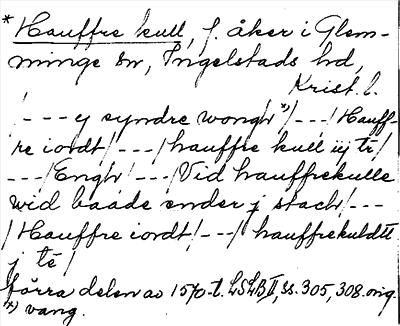 * Hauffre kull, f. åker i Glem-
minge sn, Ingelstads hd,
Krist. l.
/---y syndre wongh x)/---/Hauff-
re iordt/---/hauffre kull iij tr/
---/Engh/---/Vid hauffrekulle
wid baade ender j stach/---
/Hauffre iordt/---/hauffrekuldtt
j te/
förra delen av 1570-t. LSLB II, ss. 305, 308. orig.
x) vang.